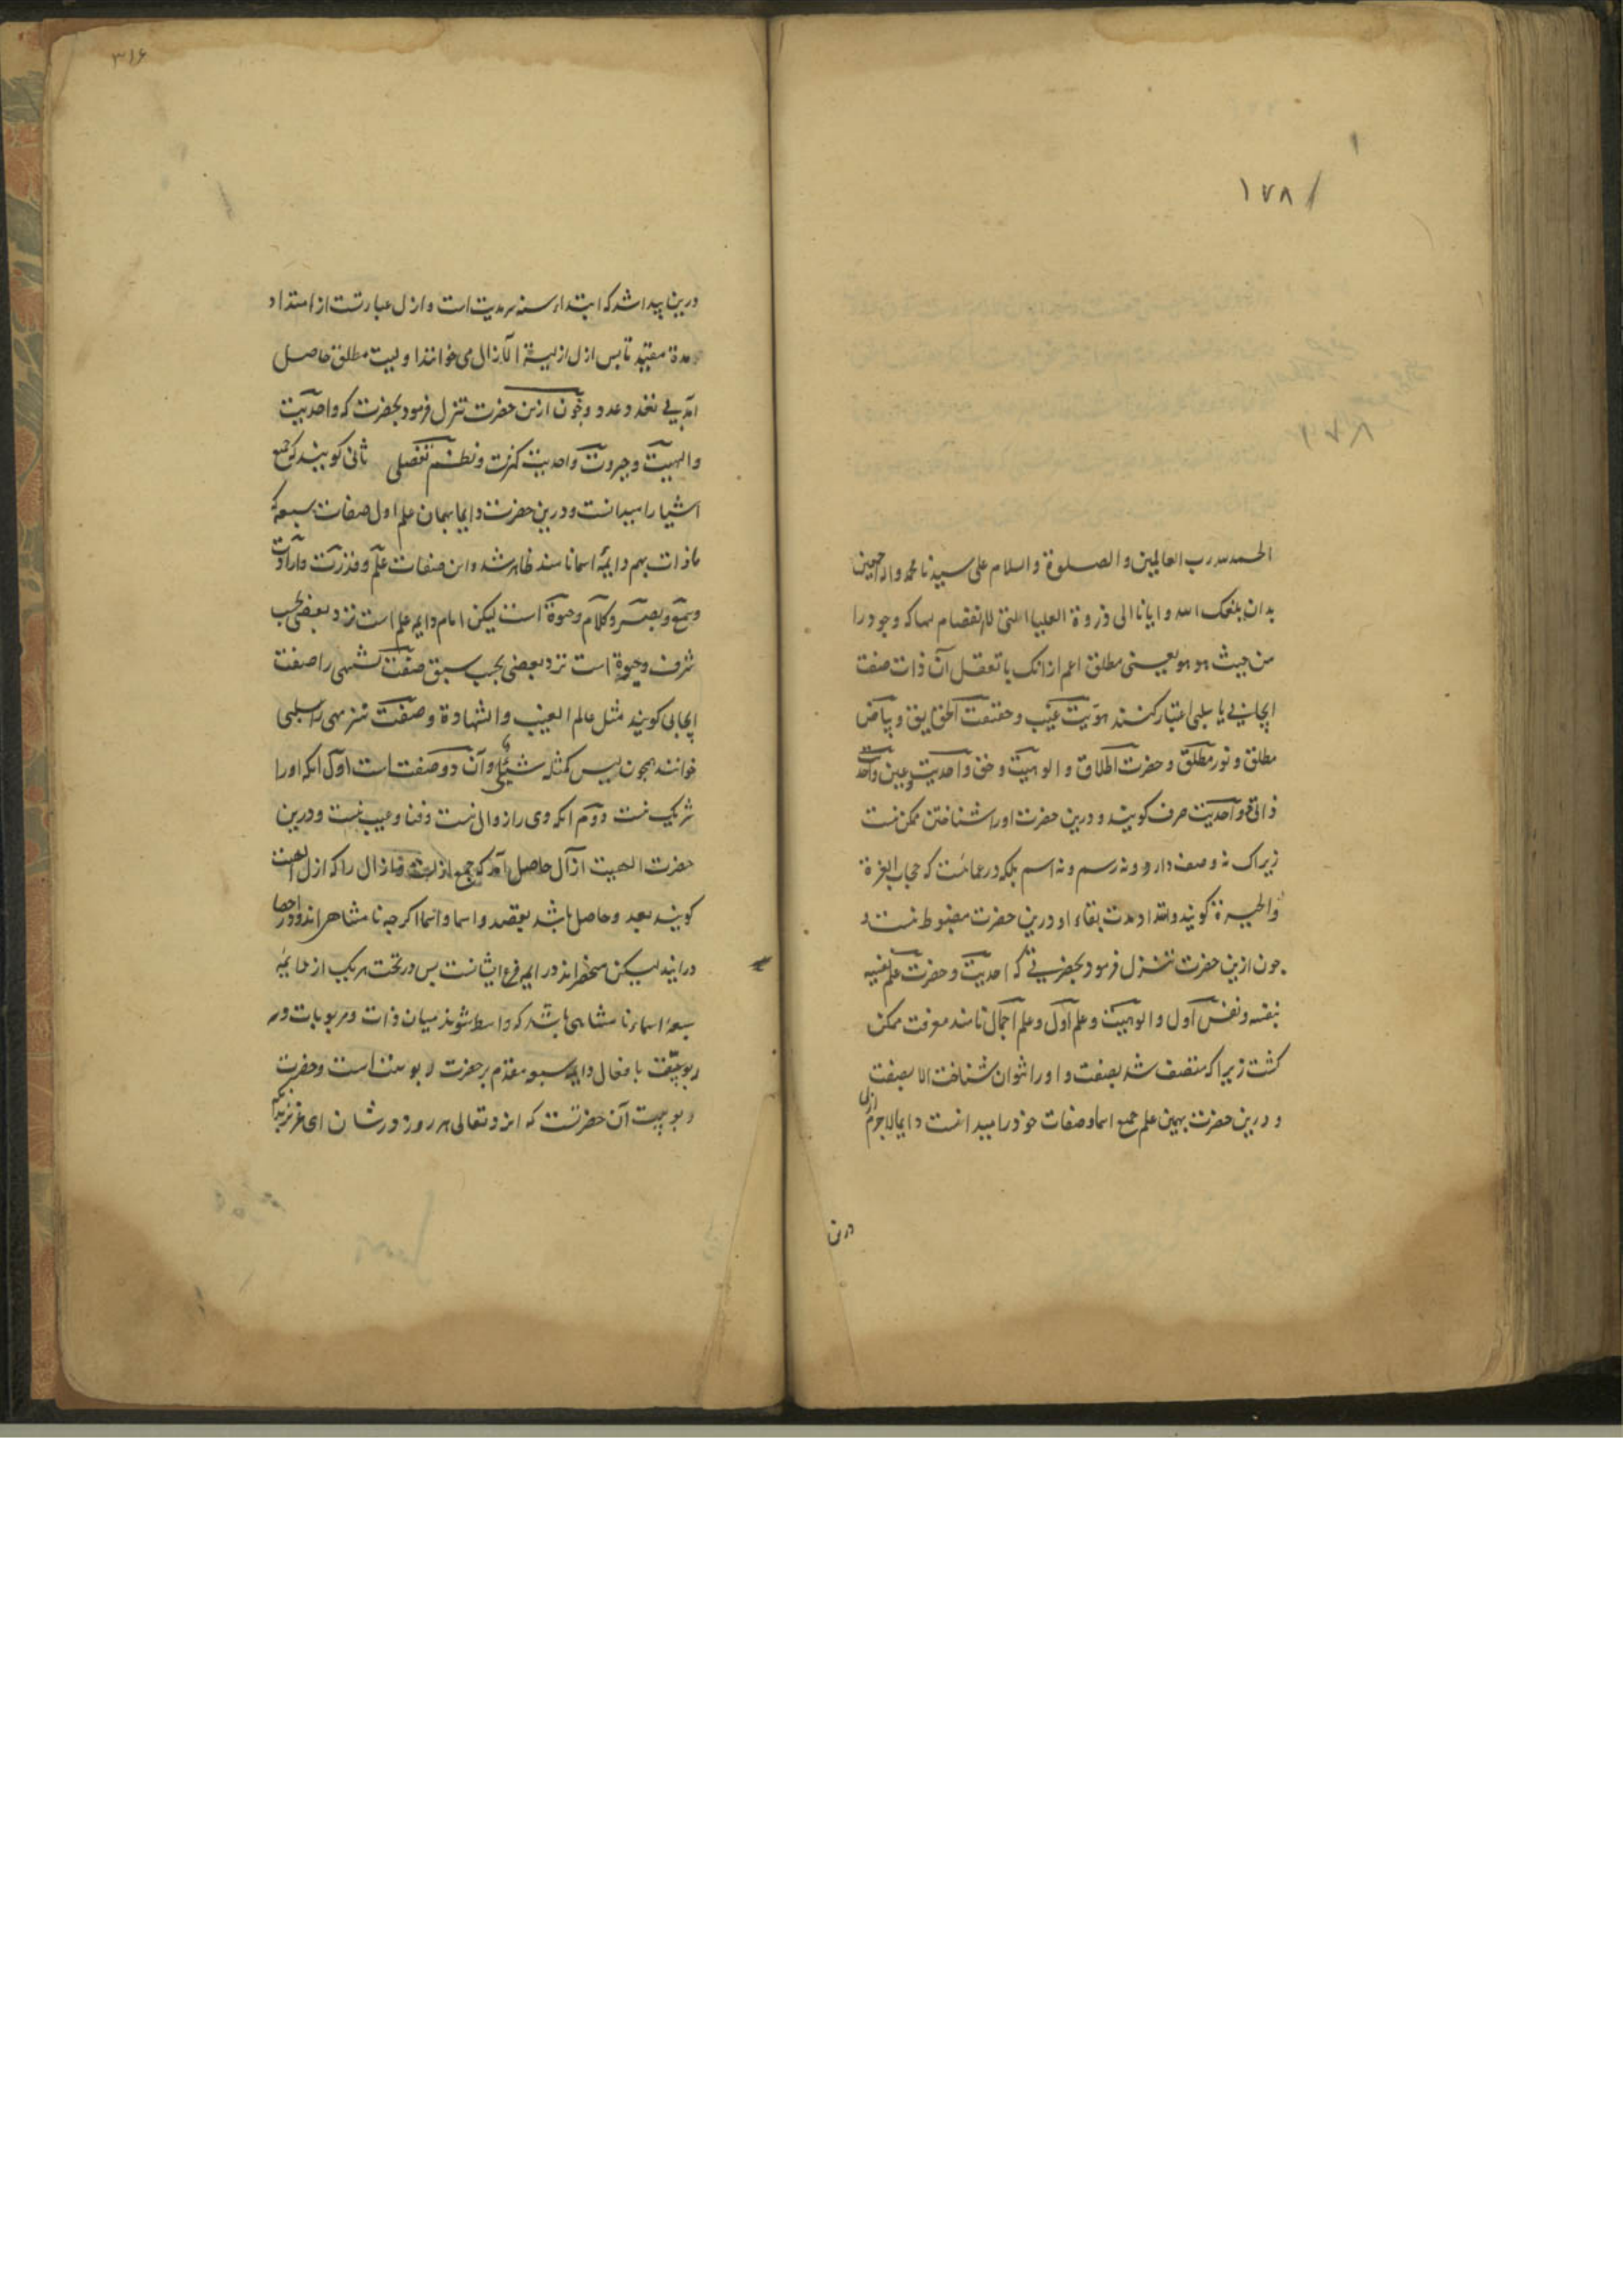 ١٧٨
الحمد لله رب العالمین و الصلوة و السلام علی سیدنا محمد و اله اجمعین
بدان بلغک الله و ایانا الی ذروة العلیا التی لا انفصام لها که وجود را
من حیث هو هو یعنی مطلق اعم از انک با تعقل آن ذات صفت
ایجابی یا سلبی اعتبار کنند هویت غیب و حقیقت الحقایق و بیاض
مطلق و نور مطلق و حضرت اطلاق و الوهیت و حق و احدیت و عین واحدت
ذاتی و احدیت صرف کویند و درین حضرت او را شناختن ممکن نیست
زیراک نه وصف دارد و نه رسم و نه اسم بلکه در عمائست که حجاب العزة
و الحیرة کویند و امتداد مدت بقاء او درین حضرت مضبوط نیست و
جون ازین حضرت تنزل فرمود بحضرتی که احدیت و حضرت علم نفسیه
بنفسه و نفس اول و الوهیت و علم اول و علم اجمال نامند معرفت ممکن
کشت زیرا که متصف شد بصفت و او را نتوان شناخت الا بصفت
و درین حضرت بهمین علم جمع اسما و صفات خود را میدانست دایما لاجرم ازل
درین
٣١۶
درین پیدا شد که ابتداء سنه سرمدیت است و ازل عبارتست از امتداد
مدة مقید تا بس ازل ازلیة الازال می خوانند اولیت مطلق حاصل
آمد بی تعدد عدد و جون ازین حضرت تنزل فرمود بحضرت که واحدیت
و الهیت و جبروت و احدیت کثرت و نظم تفصلی ثانی کویند که جمع
اشیا را میدانست و درین حضرت دایما بهمان علم اول صفات سبعه که
ما ذات بهم و ایمة اسما نامند ظاهر شد و این صفات علم و قدرت و ارادت
و سمع و بصر و کلام و حیوة است لیکن امام دایمه علم است نزد بعضی بحسب
شرف و حیوة است نزد بعضی بحسب سبق صفت تشبهی را صفت
ایجابی کویند مثل عالم الغیب و الشهادة و صفت تنزیهی را سلبی
خوانند همجون لیس کمثله شیئی و آن دو صفت است اول انکه او را
شریک نیست دوم انکه وی را زوالی نیست و فنا و عیب نیست و درین
حضرت الهیت ازآل حاصل آمد که جمع ازلست فازال را که ازل الهیت
کویند بعد و حاصل باشد بقصد و اسما و انما اکرجه نا متناهی اند و در احصا
در ایند لیکن منحصر اند در ایمه فرع ایشانست بس در تحت هر یک از ایمه
سبعه اسماء نا متناهی باشد که واسطه شوند میان ذات و مربوبات و
ربوبیت با فعال و ایمه سبعه مقدم بر حضرت ربوبیت است و حضرت
ربوبیت آن حضرتست که ایزد تعالی هر روز در شان ای عزیز